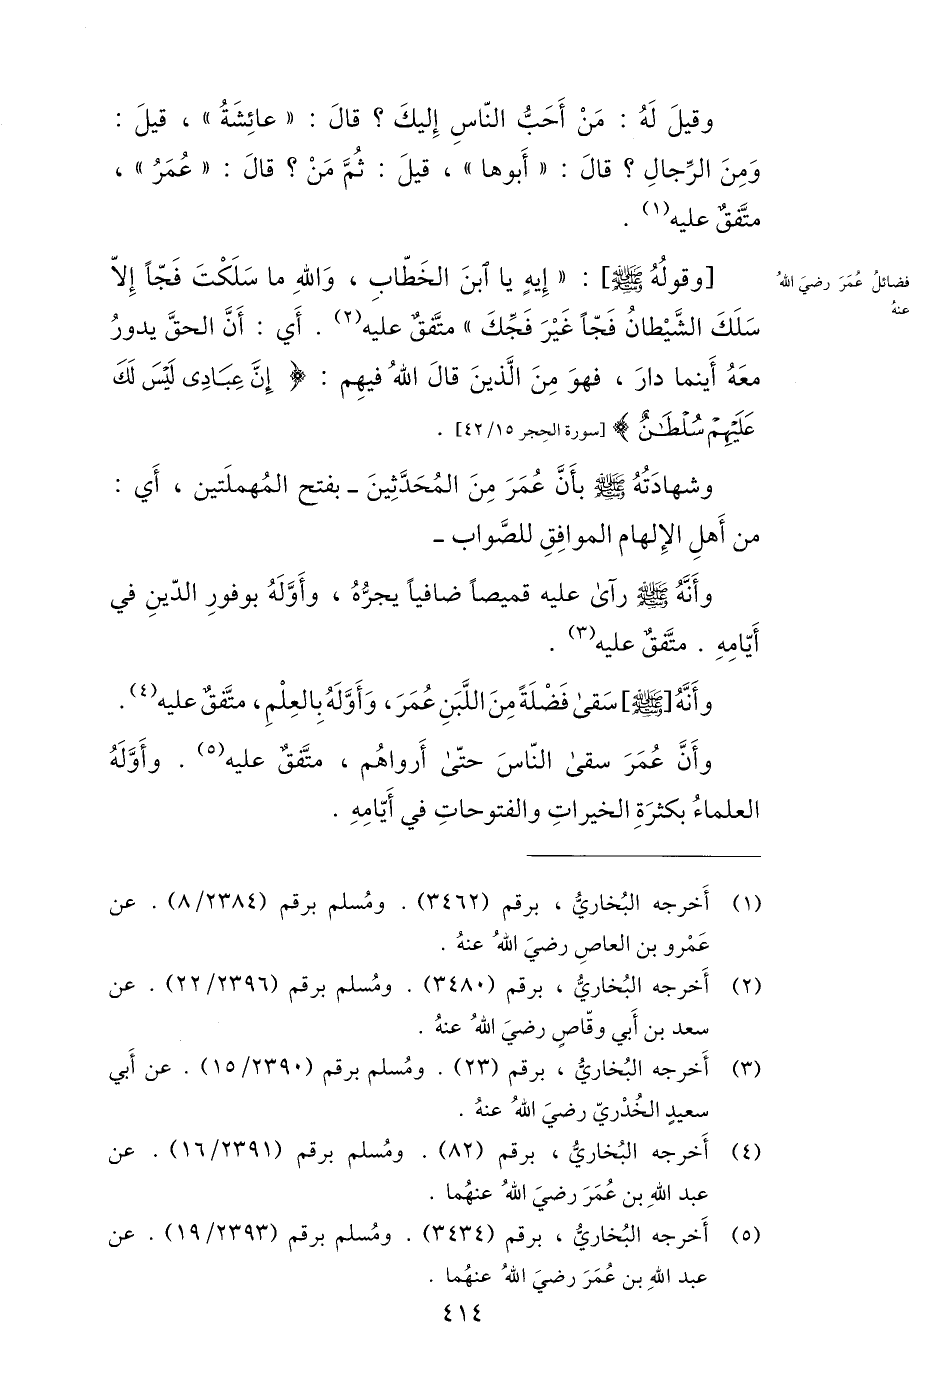 وقيلَ لَهُ : مَنْ أَحَبُّ النّاسِ إليكَ ؟ قالَ : « عائِشَةُ » ، قيلَ :
وَمِنَ الرِّجالِ ؟ قالَ : « أَبوها » ، قيلَ : ثُمَّ مَنْ ؟ قالَ : « عُمَرُ » ،
متَّفقٌ عليه(١) .
فضائلُ عُمَرَ رضيَ اللهُ
عنهُ
[وقولُهُ ﷺ] : « إيهٍ يا ٱبنَ الخَطّابِ ، وَاللهِ ما سَلَكْتَ فَجّاً إلاّ
سَلَكَ الشَّيْطانُ فَجّاً غَيْرَ فَجِّكَ » متَّفقٌ عليه(٢) . أَي : أَنَّ الحقَّ يدورُ
معَهُ أَينما دارَ ، فهوَ مِنَ الَّذينَ قالَ اللهُ فيهِم : ﴿ إِنَّ عِبَادِى لَيْسَ لَكَ
عَلَيْهِمْ سُلْطَـٰنٌ ﴾ [سورة الحِجر ٤٢/١٥] .
وشهادَتُهُ ﷺ بأَنَّ عُمَرَ مِنَ المُحَدَّثِينَ ـ بفتح المُهملَتين ، أَي :
من أَهلِ الإلهام الموافِقِ للصَّواب ـ
وأَنَّهُ ﷺ رآىٰ عليه قميصاً ضافياً يجرُّهُ ، وأَوَّلَهُ بوفورِ الدّينِ في
أَيّامِهِ . متَّفقٌ عليه(٣) .
وأَنَّهُ [ﷺ] سَقىٰ فَضْلَةً مِنَ اللَّبَنِ عُمَرَ ، وَأَوَّلَهُ بِالعِلْمِ ، متَّفقٌ عليه(٤) .
وأَنَّ عُمَرَ سقىٰ النّاسَ حتّىٰ أَرواهُم ، متَّفقٌ عليه(٥) . وأَوَّلَهُ
العلماءُ بكثرَةِ الخيراتِ والفتوحاتِ في أَيّامِهِ .
(١) أَخرجه البُخاريُّ ، برقم (٣٤٦٢) . ومُسلم برقم (٨/٢٣٨٤) . عن
عَمْرو بن العاصِ رضيَ اللهُ عنهُ .
(٢) أَخرجه البُخاريُّ ، برقم (٣٤٨٠) . ومُسلم برقم (٢٢/٢٣٩٦) . عن
سعد بن أَبي وقّاصٍ رضيَ اللهُ عنهُ .
(٣) أَخرجه البُخاريُّ ، برقم (٢٣) . ومُسلم برقم (١٥/٢٣٩٠) . عن أَبي
سعيدٍ الخُدْريّ رضيَ اللهُ عنهُ .
(٤) أَخرجه البُخاريُّ ، برقم (٨٢) . ومُسلم برقم (١٦/٢٣٩١) . عن
عبد اللهِ بن عُمَرَ رضيَ اللهُ عنهُما .
(٥) أَخرجه البُخاريُّ ، برقم (٣٤٣٤) . ومُسلم برقم (١٩/٢٣٩٣) . عن
عبد اللهِ بن عُمَرَ رضيَ اللهُ عنهُما .
٤١٤